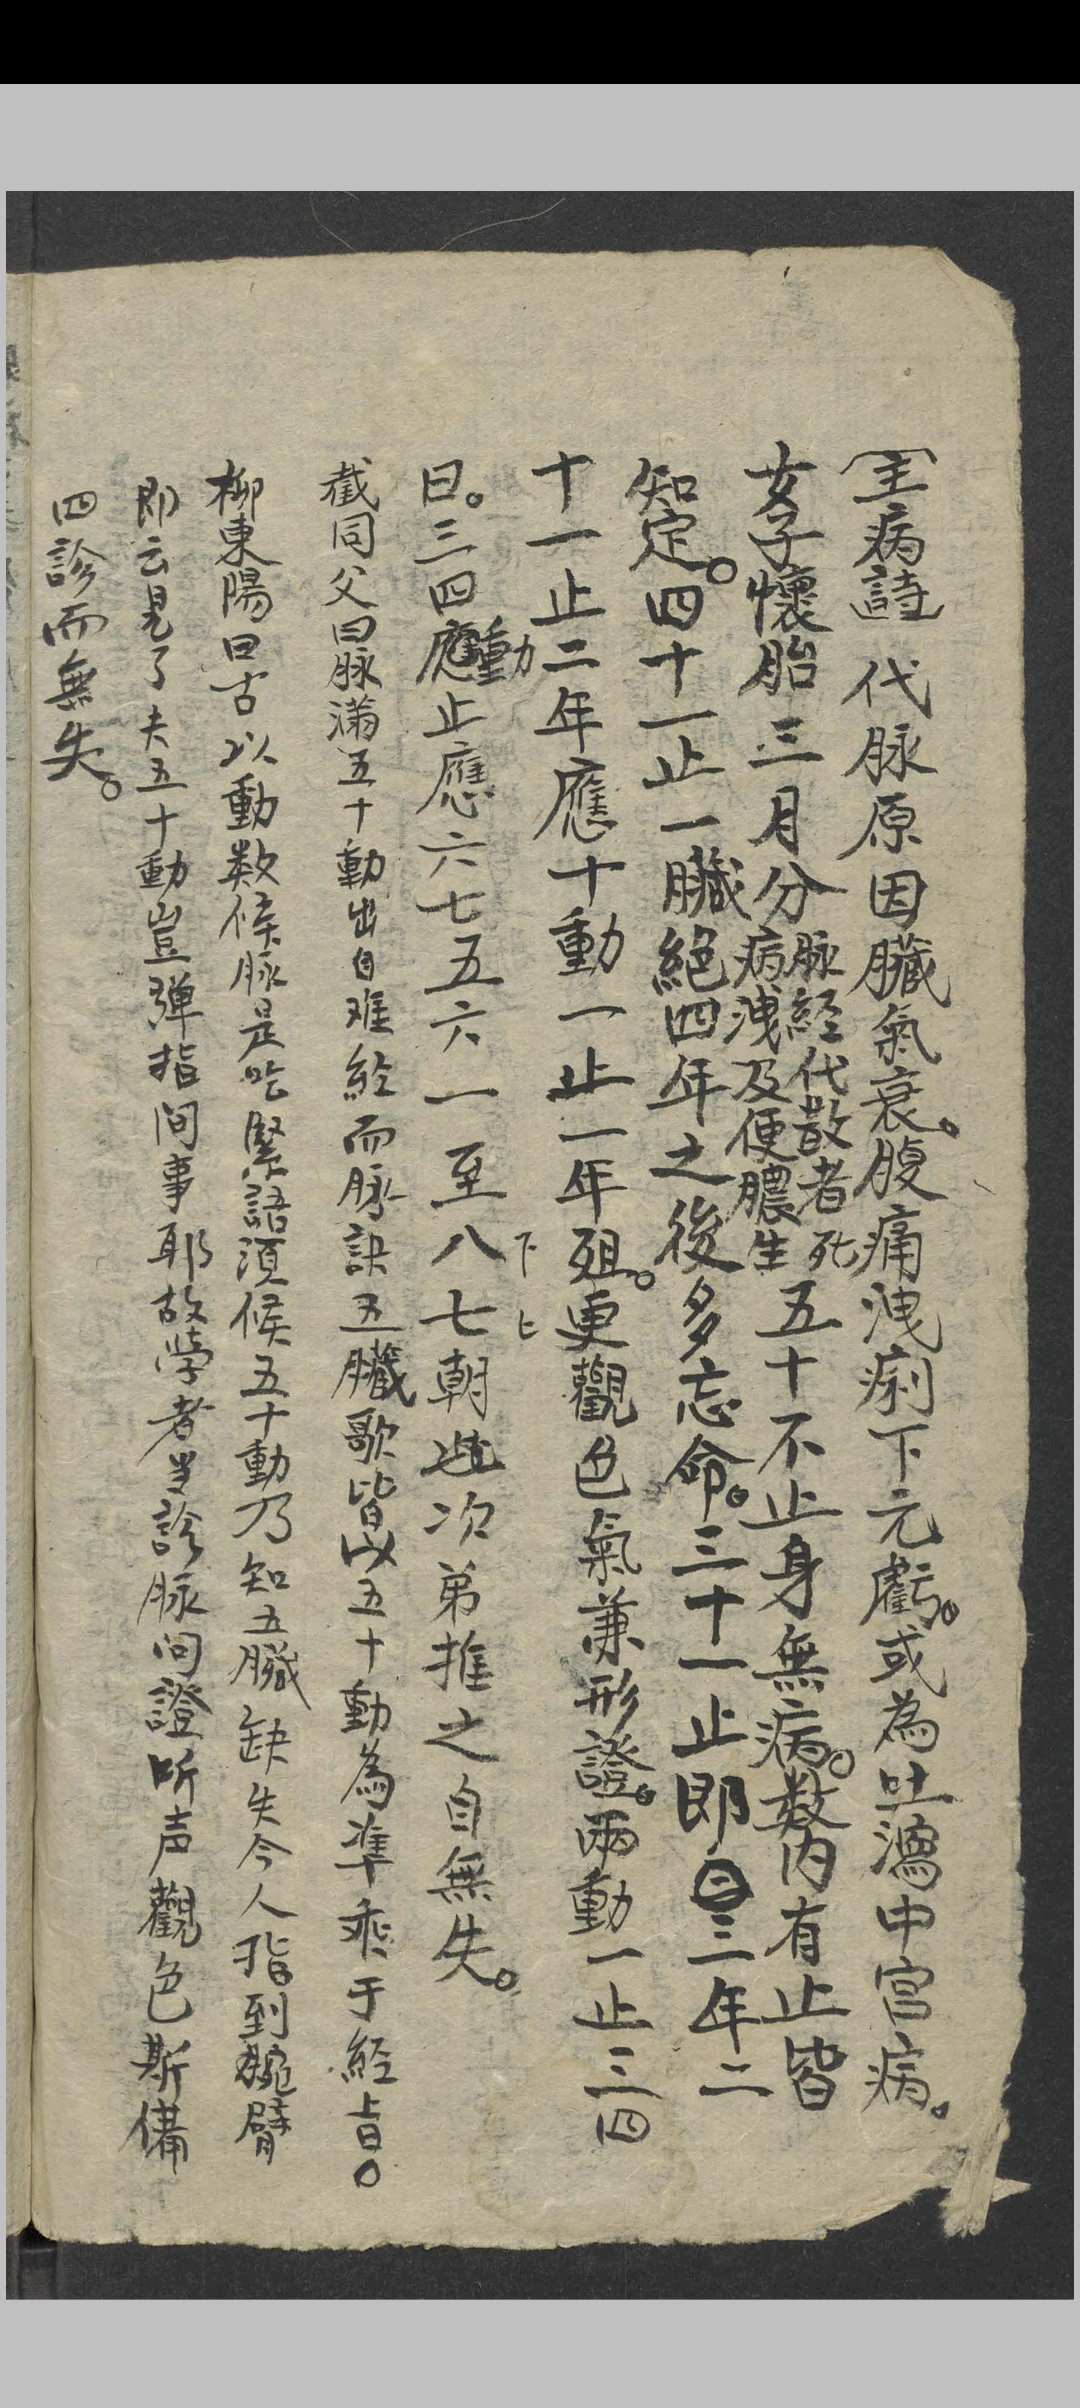 主病詩　代脉原因臟氣衰。腹痛洩痢下元虧。或為吐瀉中宮病。
女子懷胎三月分脉經代散者死病洩及便膿生五十不止身無病。数内有止皆
知定。四十一止一臟絕四年之後多忘命。三十一止即三年二
十一止二年應十動一止一年殂。更觀色氣兼形證。兩動一止三四
日。三四動應止應六七五六一至八七朝次弟推之自無失。
下上
截同父曰脉滿五十動出自难經而脉訣五臟歌皆以五十動為準乖于經旨〇
柳東陽曰古以動数候脉是吃緊語須候五十動乃知五臟缺失今人指到腕臂
即云見了夫五十動豈弹指间事耶故學者当診脉问證听声觀色斯備
四診而無失。